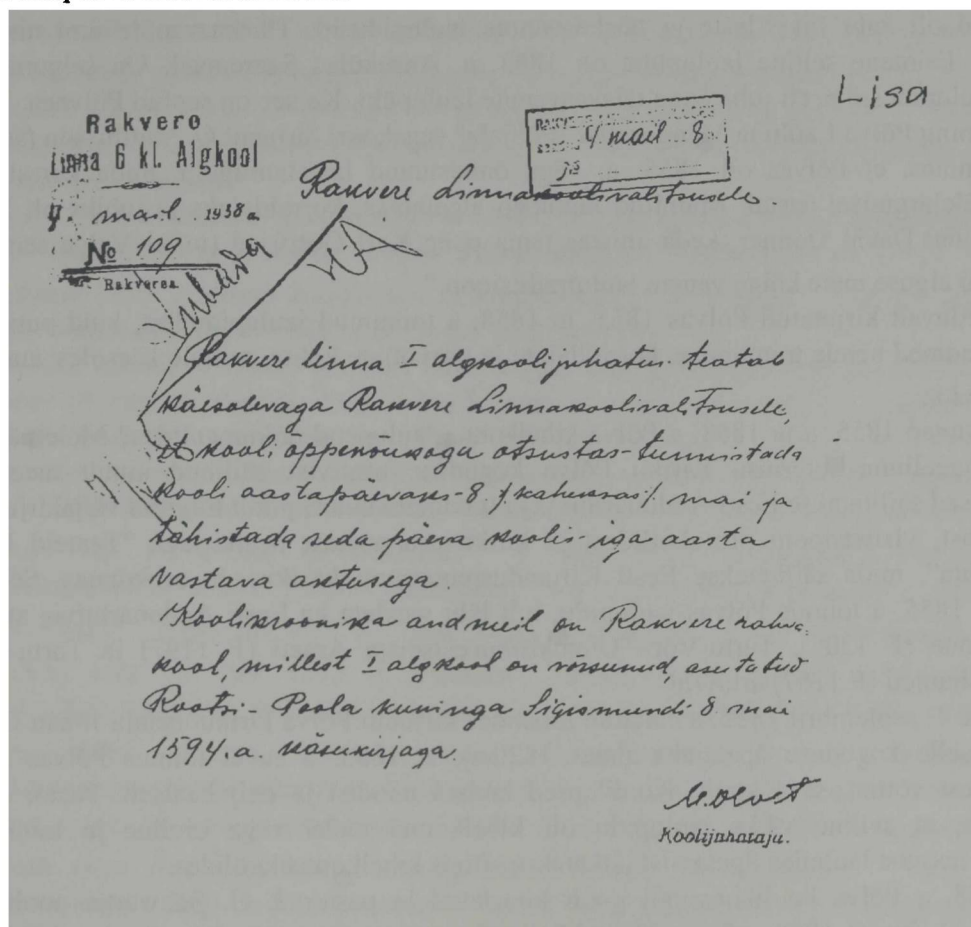 Lisa
Rakvere
Linna 6 kl. Algkool
4. mail 1938 a.
№ 109
Rakveres
4 mail 8
Rakvere Linnakoolivalitsusele
Lubada
Rakvere linna I algkooli juhatus teatab
käesolevaga Rakvere Linnakoolivalitsusele
et kooli õppenõukogu otsustas tunnistada
kooli aastapäevaks - 8. /kaheksas/ mai ja
tähistada seda päeva koolis - iga aasta
vastava aktusega.
Koolikroonika andmeil on Rakvere rahva-
kool, millest I algkool on võrsunud, asutatud
Rootsi - Poola kuninga Sigismundi 8. mai
1594. a. käsukirjaga.
Koolijuhataja.